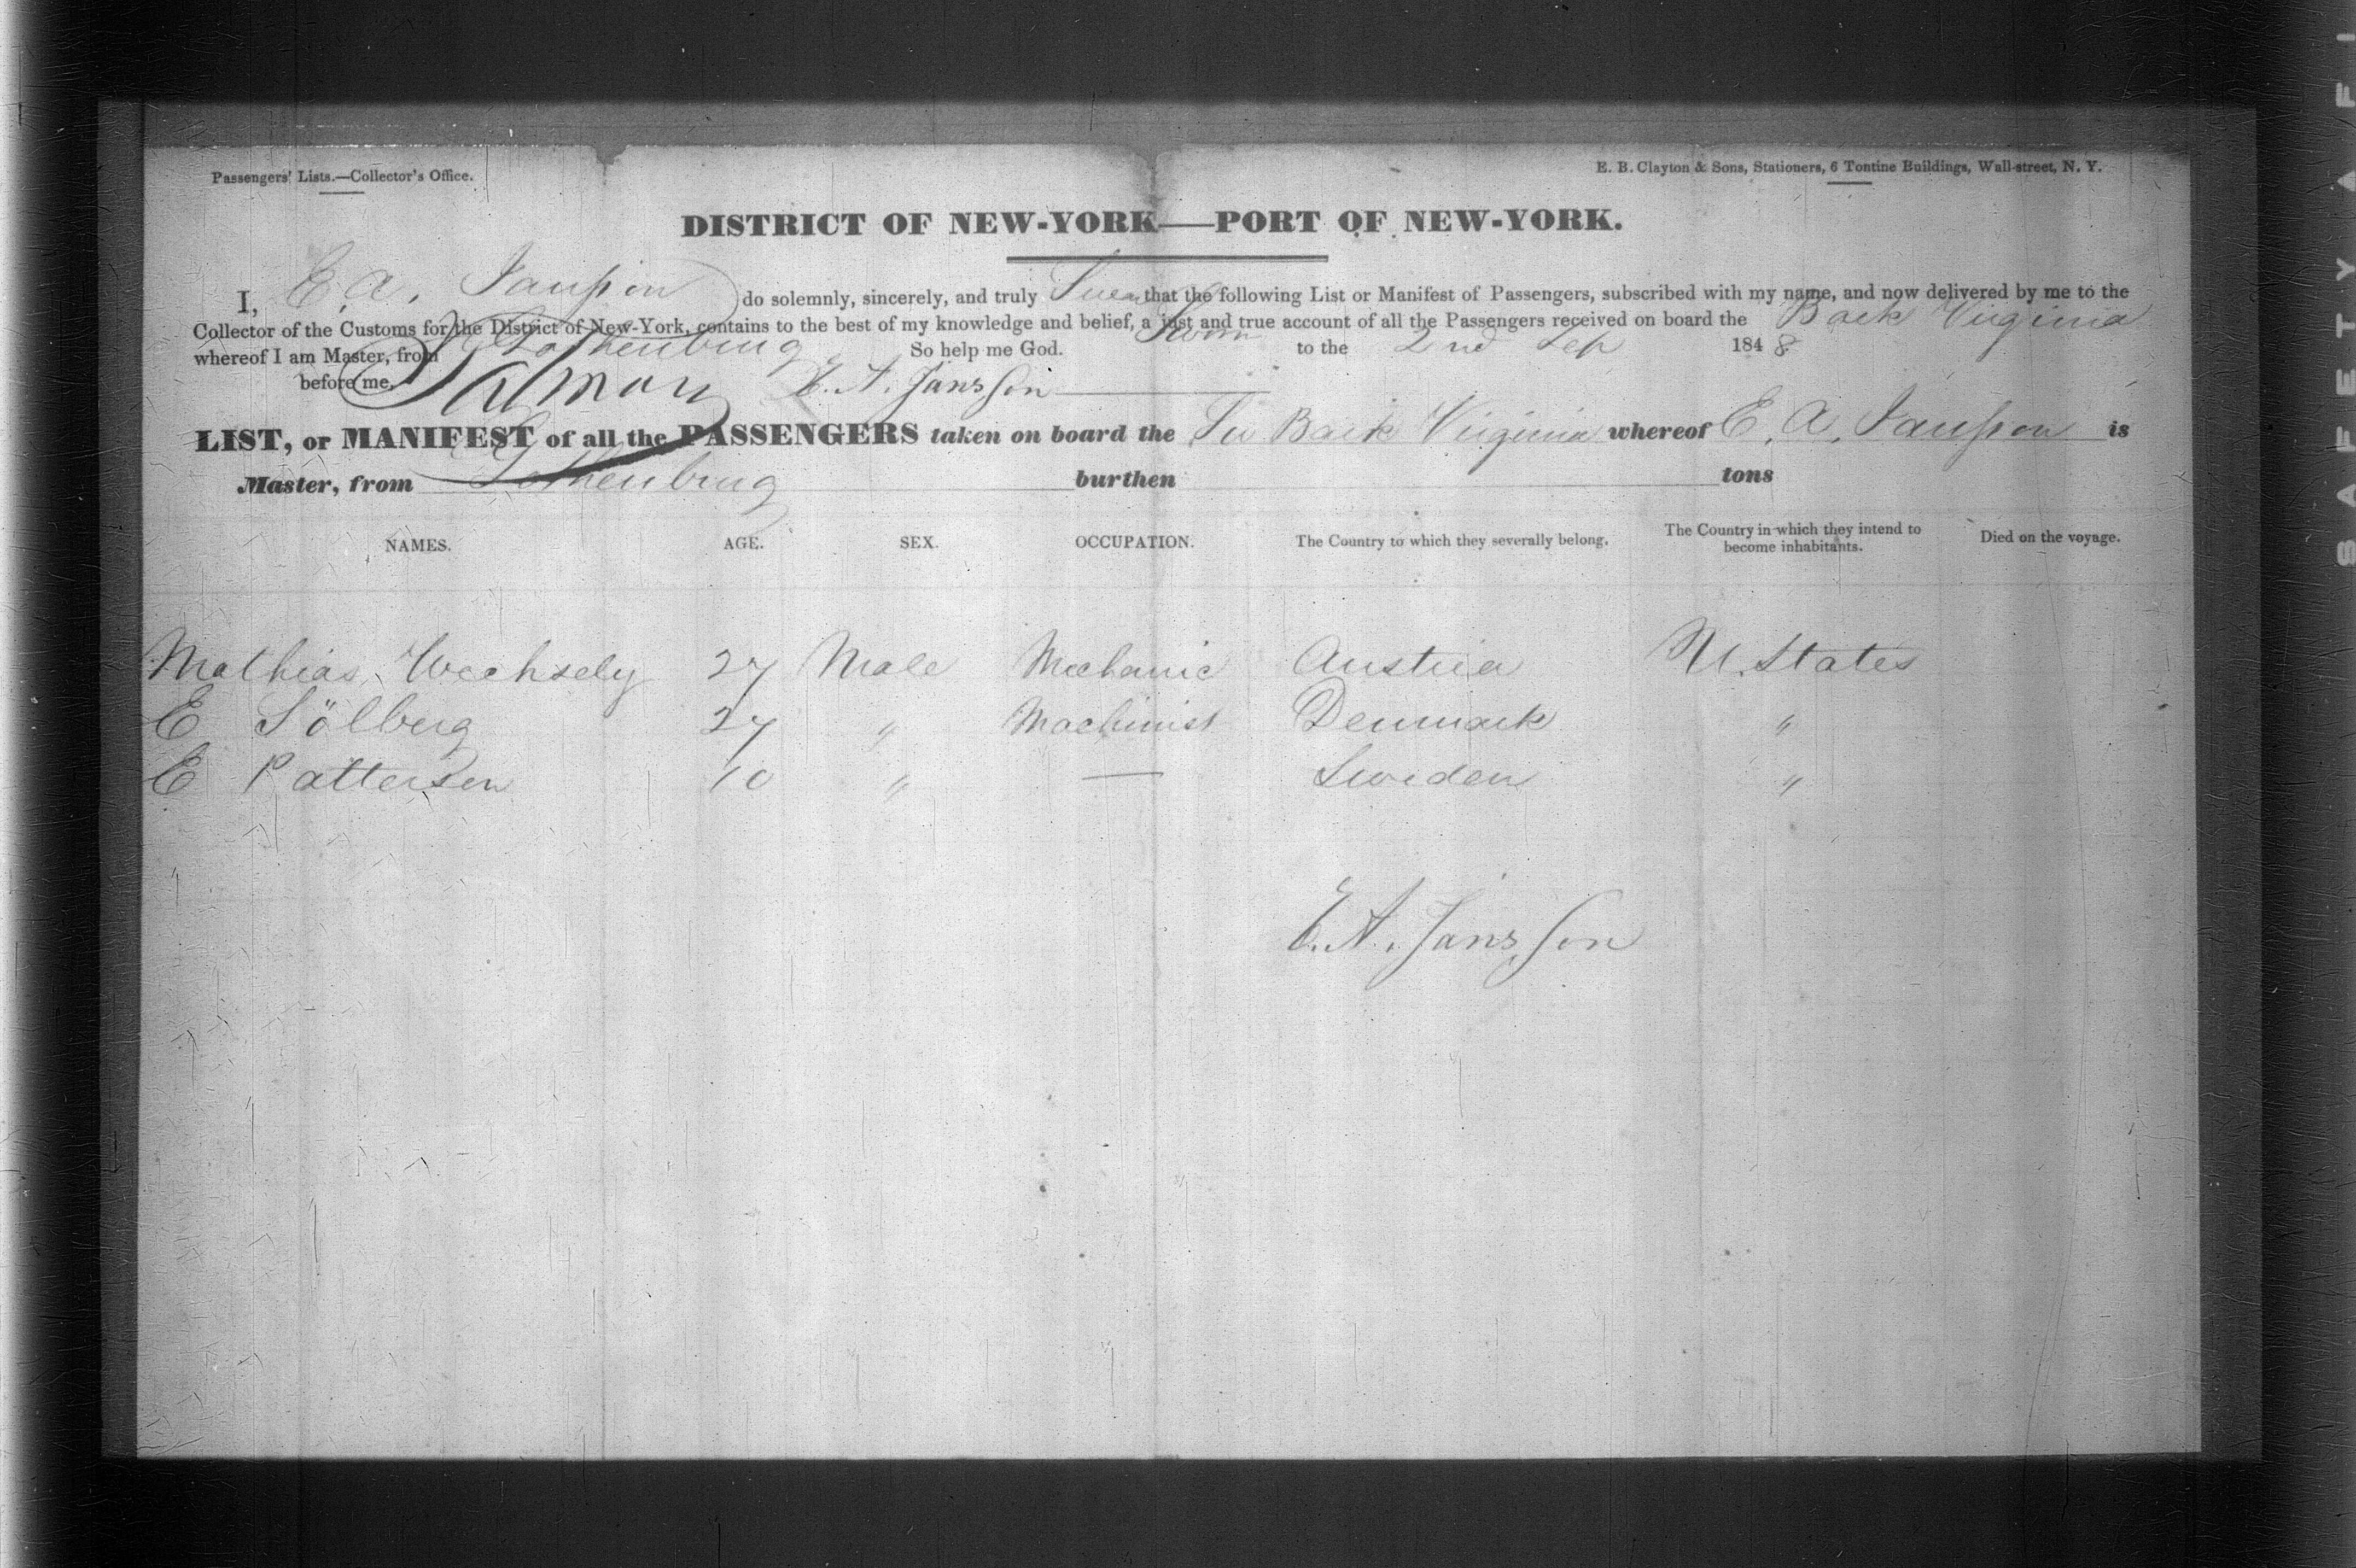 Passengers' Lists.—Collector's Office.
E. B. Clayton & Sons, Stationers, 6 Tontine Buildings, Wall-street, N. Y.
DISTRICT OF NEW-YORK—PORT OF NEW-YORK.
I, E, A, Jansson do solemnly, sincerely, and truly Swear that the following List or Manifest of Passengers, subscribed with my name, and now delivered by me to the
Collector of the Customs for the District of New-York, contains to the best of my knowledge and belief, a just and true account of all the Passengers received on board the Bark Virginia
whereof I am Master, from Gothenburg So help me God. Sworn to the 2nd Sep 1848
before me, E. A. Jansson
LIST, or MANIFEST of all the PASSENGERS taken on board the Bark Virginia whereof E, A, Jansson is
Master, from Gothenburg burthen tons
NAMES. AGE. SEX. OCCUPATION. The Country to which they severally belong. The Country in which they intend to become inhabitants. Died on the voyage.
Mathias Wechsely 27 Male Mechanic Austria U. States
E Sölberg 27 " Machinist Denmark "
E Pattersen 10 " — Sweden "
E. A. Jansson
SAFETY FI